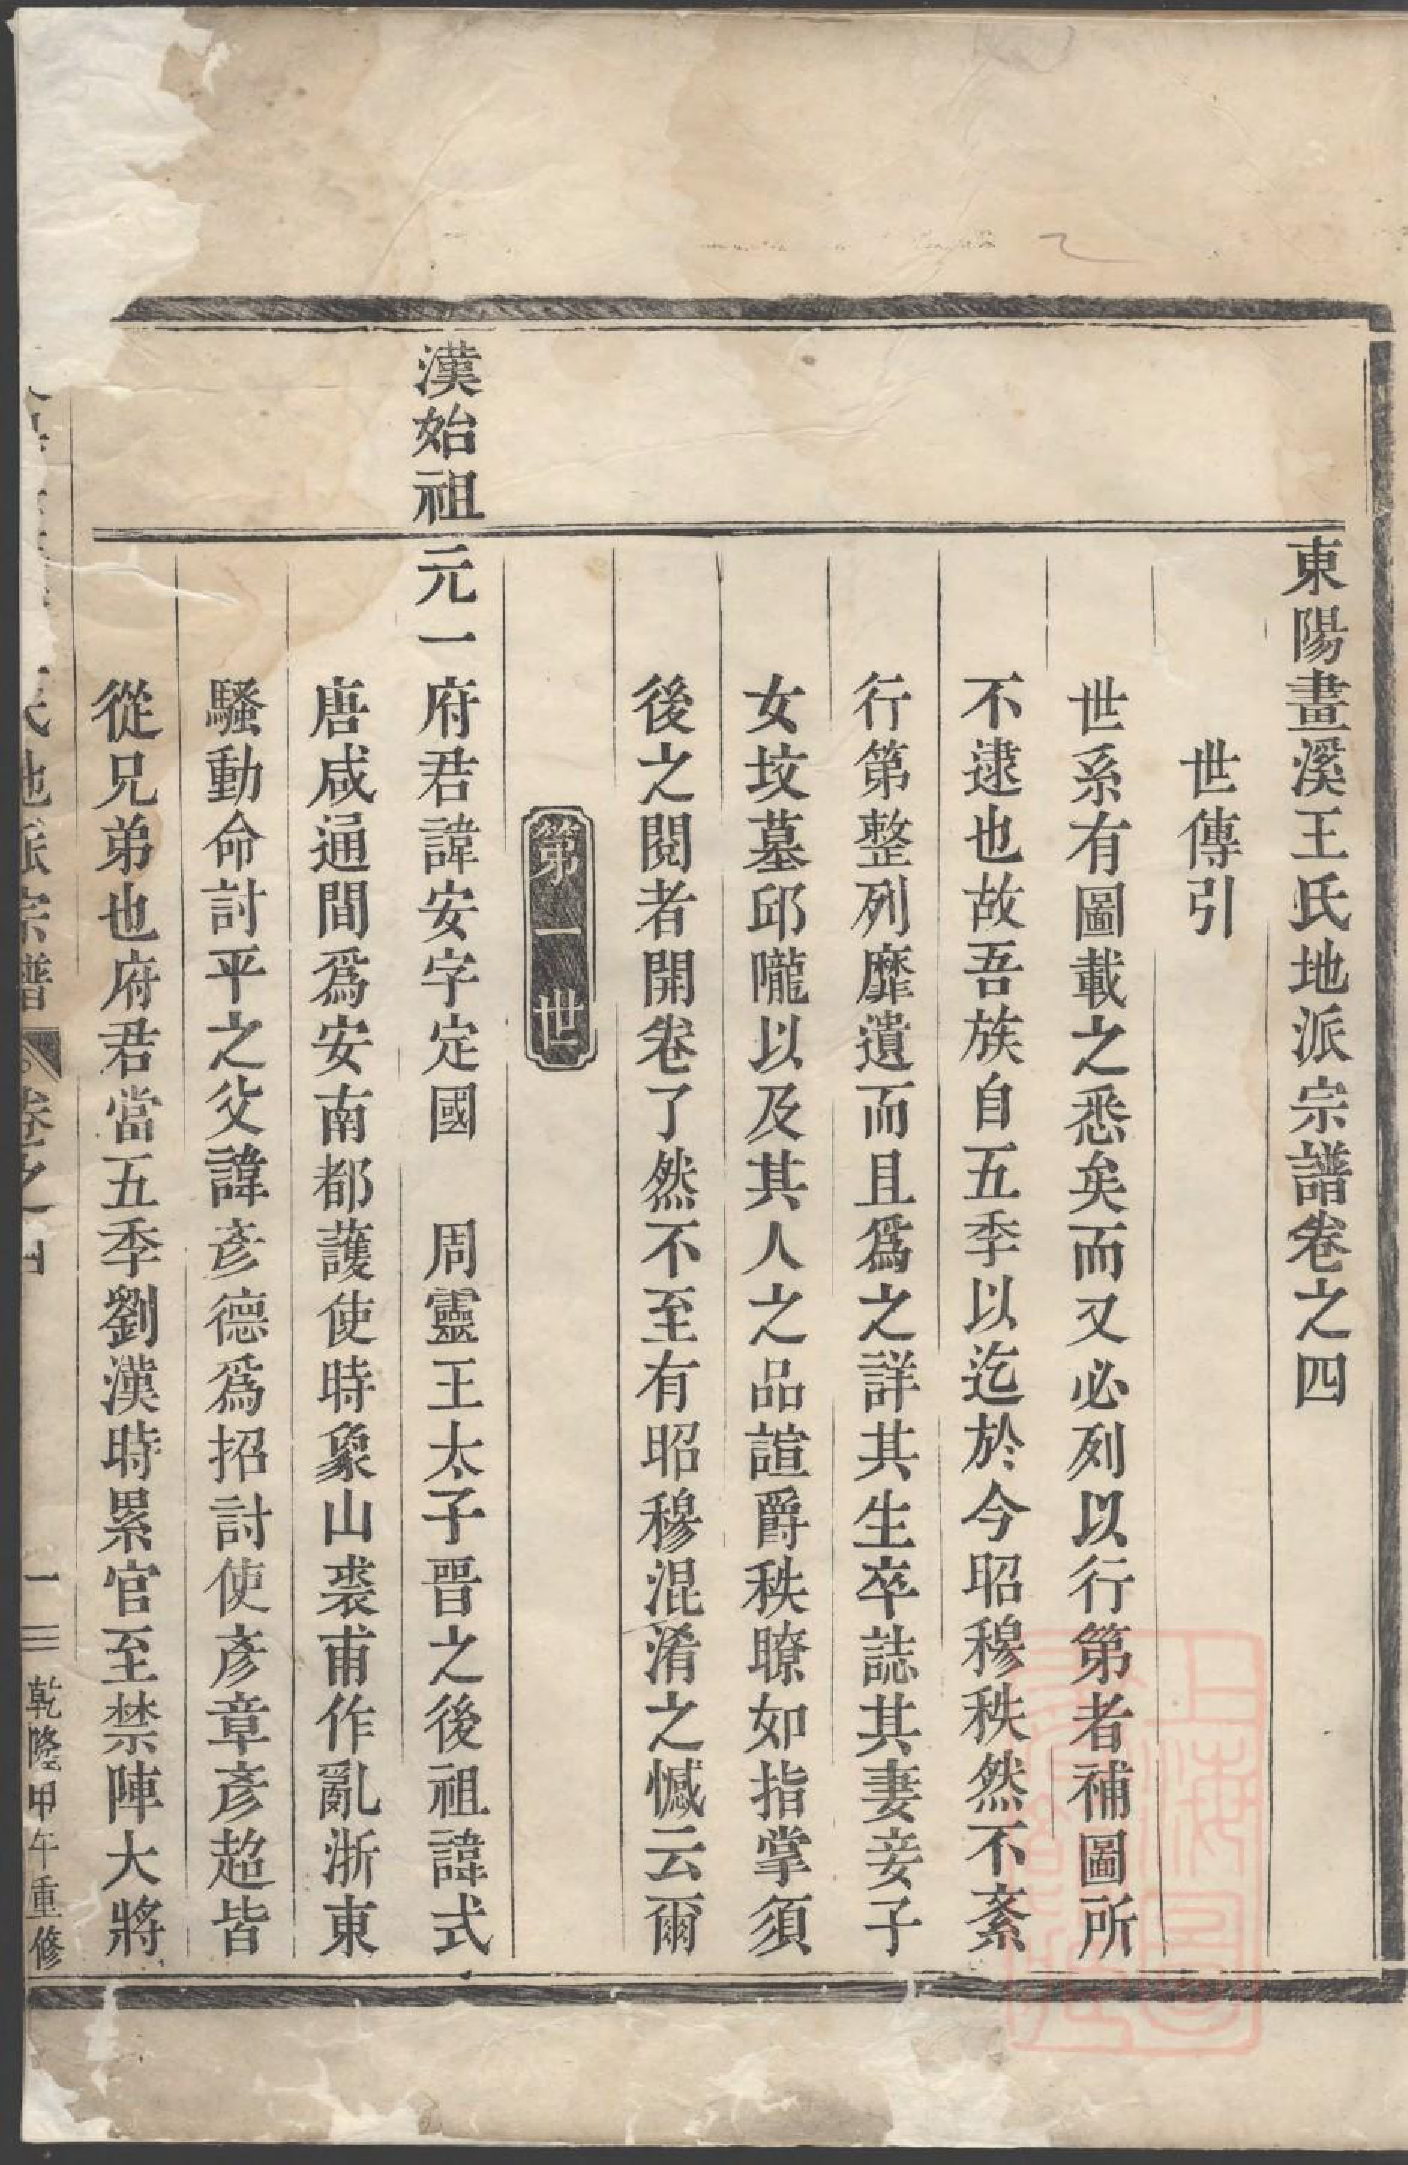 東陽畫溪王氏地派宗譜卷之四
世傳引
世系有圖載之悉矣而又必列以行第者補圖所
不逮也故吾族自五季以迄於今昭穆秩然不紊
行第整列靡遺而且爲之詳其生卒誌其妻妾子
女坟墓邱隴以及其人之品誼爵秩瞭如指掌須
後之閱者開卷了然不至有昭穆混淆之憾云爾
第一世
漢始祖
元一府君諱安字定國　周靈王太子晋之後祖諱式
唐咸通間爲安南都護使時象山裘甫作亂浙東
騷動命討平之父諱彥德爲招討使彥章彥超皆
從兄弟也府君當五季劉漢時累官至禁陣大將
氏地派宗譜
卷之四
一
乾隆甲午重修
上海圖書館藏